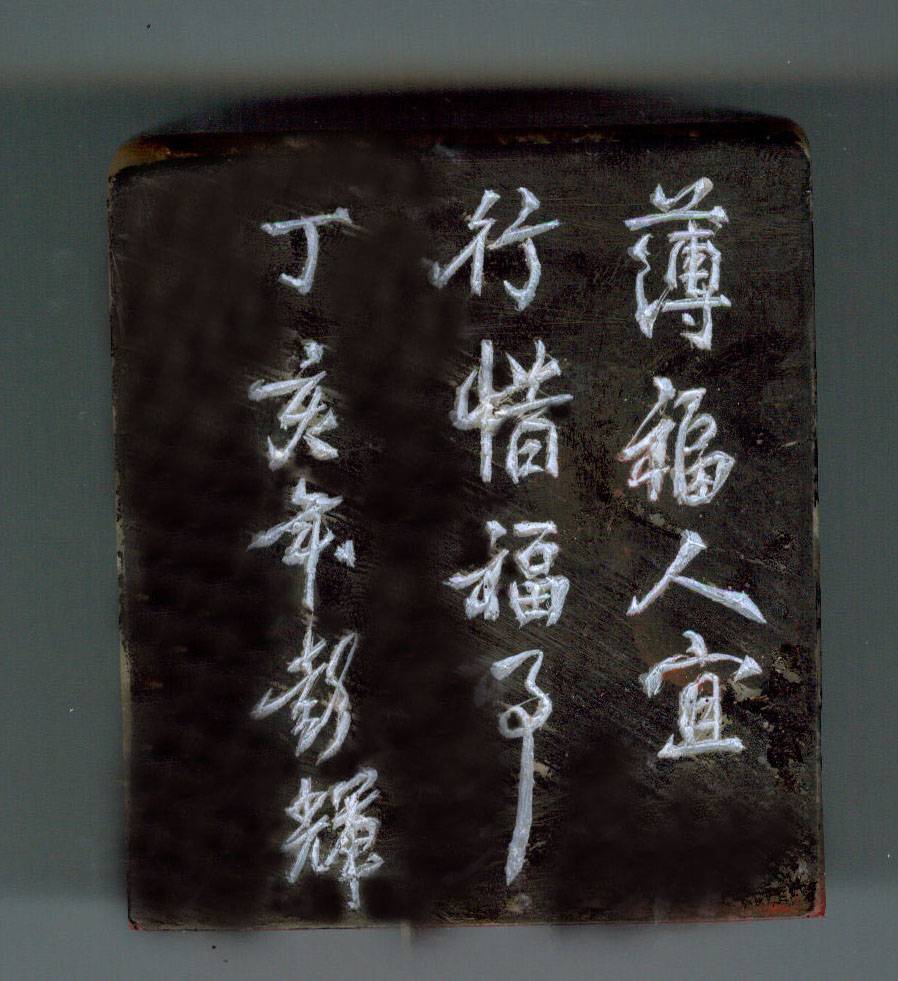 薄福人宜
行惜福事
丁亥年彭輝